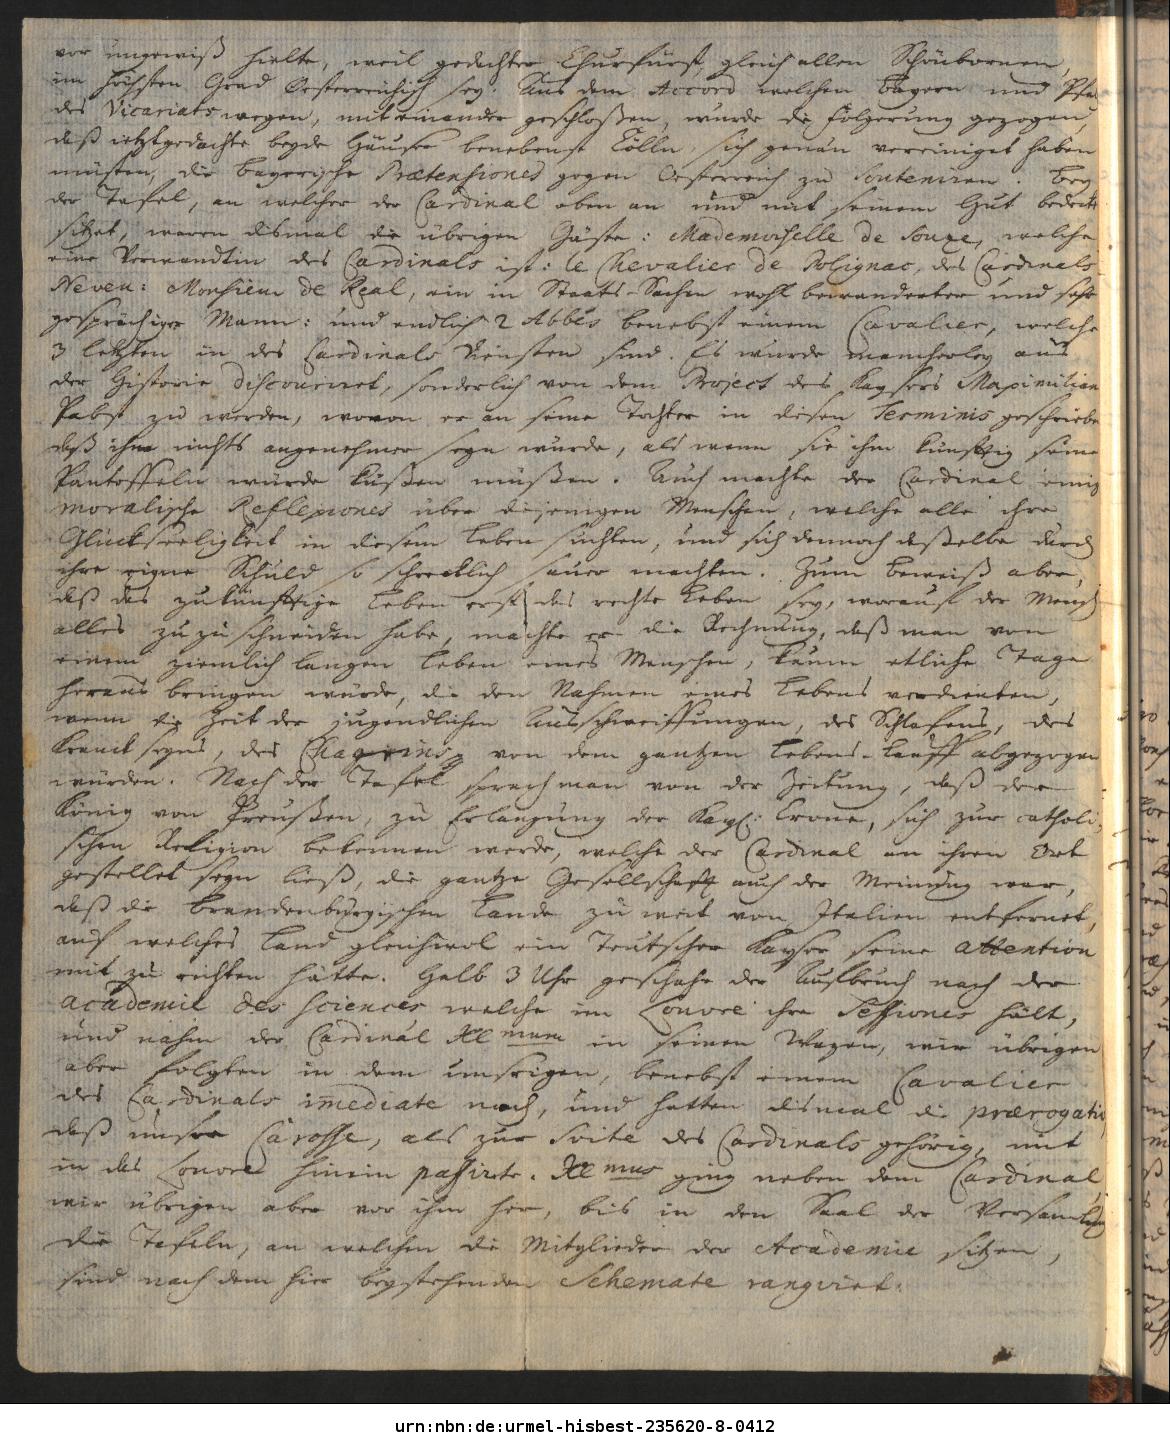 vor ungewiß hielte, weil gedachter Churfürst, gleich allen Schönbornen,
im höchsten Grad Oesterreichisch sey. Aus dem Accord welchen Bayern und Pfaltz
des Vicariats wegen, mit einander geschloßen, wurde die Folgerung gezogen,
daß ietztgedachte beyde Häuser benebenst Cölln, sich genau vereiniget haben
müsten, die Bayerische Prætensiones gegen Oesterreich zu souteniren. Bey
der Tafel, an welcher der Cardinal oben an und mit seinem Hut bedeckt
sitzet, waren dismal die übrigen Gäste: Mademoiselle de Souze, welche
eine Verwandtin des Cardinals ist: le Chevalier de Polignac, des Cardinals
Neveu: Monsieur de Real, ein in Staats-Sachen wohl bewanderter und sehr
gesprächiger Mann: und endlich 2 Abbés benebst einem Cavalier, welche
3 letzten in des Cardinals Diensten sind. Es wurde mancherley aus
der Historie discouriret, sonderlich von dem Project des Kaysers Maximilian
Pabst zu werden, wovon er an seine Tochter in diesen Terminis geschrieben
daß ihm nichts angenehmer seyn wurde, als wenn sie ihm künfftig seine
Pantoffeln würde küßen müßen. Auch machte der Cardinal einige
moralische Reflexiones über diejenigen Menschen, welche alle ihre
Glückseeligkeit in diesem Leben suchten, und sich dennoch daßelbe durch
ihre eigne Schuld so schrecklich sauer machten. Zum Beweiß aber,
daß das zukünfftige Leben erst das rechte Leben sey, worauf der Mensch
alles zuzuschneiden habe, machte er die Rechnung, daß man von
einem ziemlich langen Leben eines Menschen, kaum etliche Tage
heraus bringen würde, die den Nahmen eines Lebens verdienten,
wenn die Zeit der jugendlichen Ausschweiffungen, des Schlafens, des
Kranckseyns, des Chagrins von dem gantzen Lebens-Lauff abgezogen
würden. Nach der Tafel sprach man von der Zeitung, daß der
König von Preußen, zu Erlangung der Kayſ: Crone, sich zur catholi-
schen Religion bekennen werde, welche der Cardinal an ihren Ort
gestellet seyn ließ, die gantze Gesellschafft auch der Meinung war,
daß die Brandenburgischen Lande zu weit von Italien entfernet,
auf welches Land gleichwol ein Teutscher Kayser seine attention
mit zu richten hätte. Halb 3 Uhr geschahe der Aufbruch nach der
academie des sciences welche im Louvre ihre Sessiones hält,
und nahm der Cardinal Xl mum in seinen Wagen, wir übrigen
aber folgten in dem unsrigen, benebst einem Cavalier
des Cardinals im̄ediate nach, und hatten dismal die prærogativ
daß unsre Carosse, als zur Svite des Cardinals gehörig, mit
in das Louvre hinein passirete. Xl mus ging neben dem Cardinal,
wir übrigen aber vor ihm her, bis in den Saal der Versamlung
die Tafeln, an welchen die Mitglieder der Academie sitzen,
sind nach dem hier beystehenden Schemate rangiret:
urn:nbn:de:urmel-hisbest-235620-8-0412